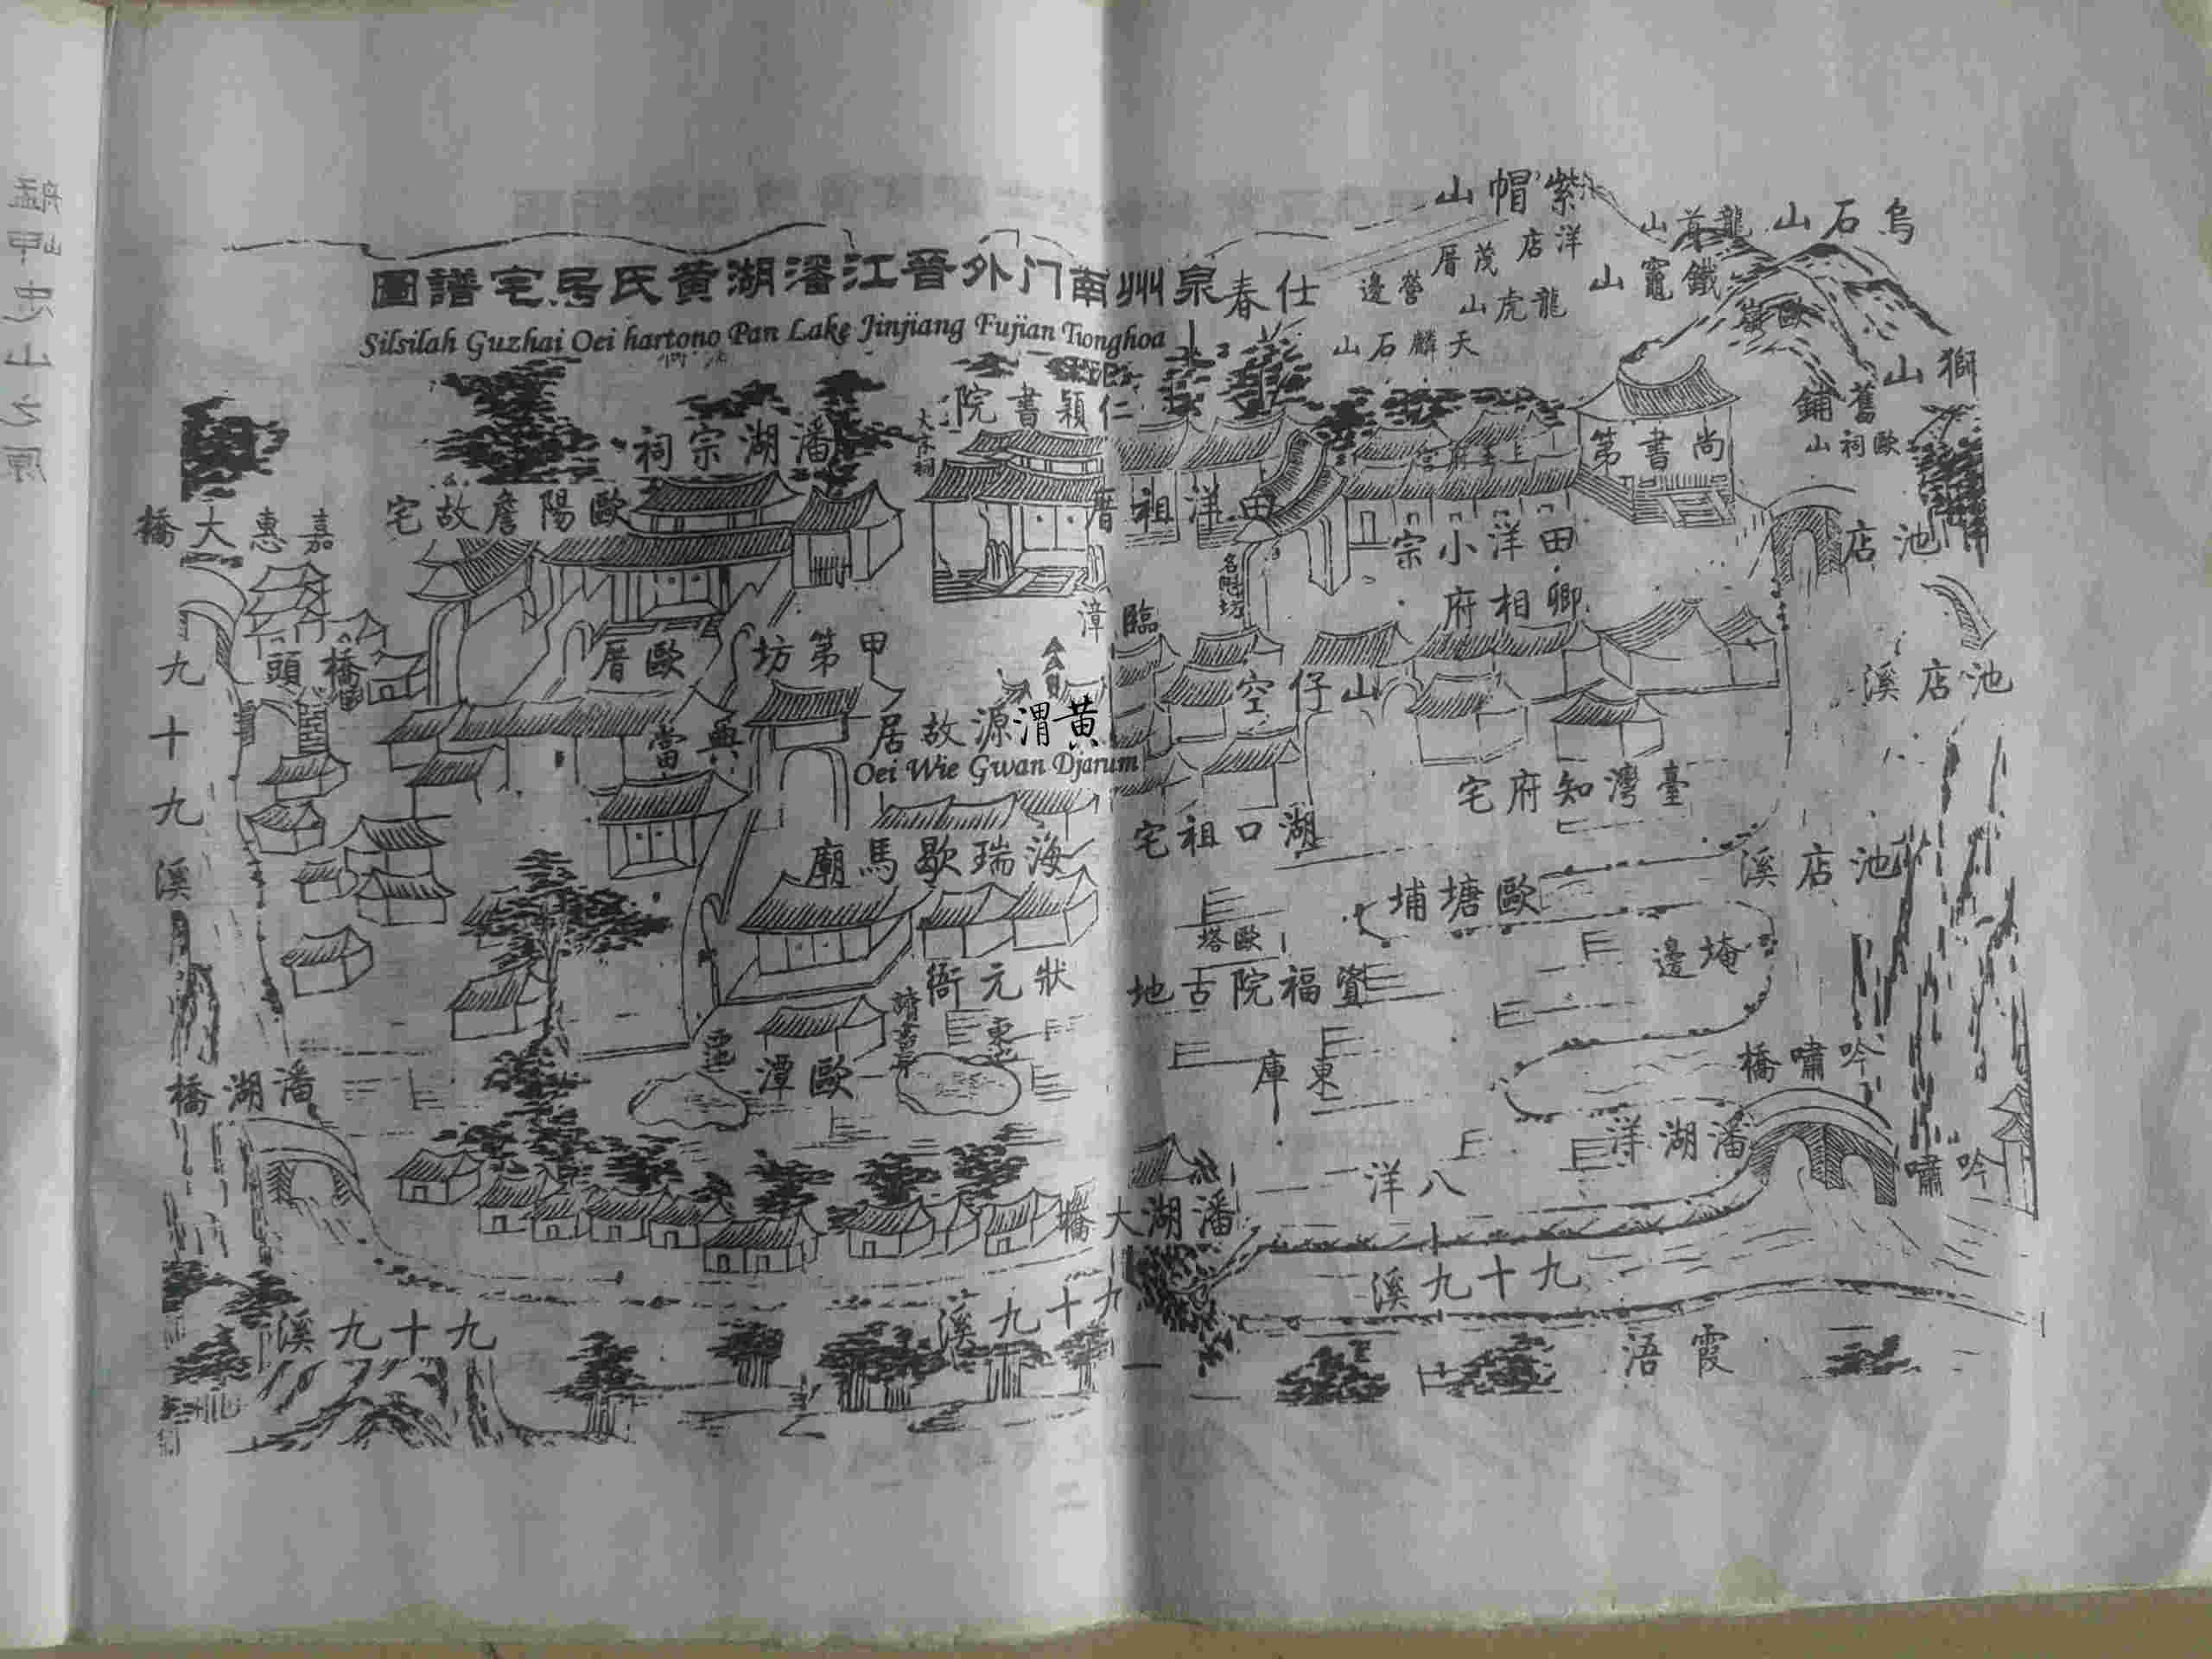 泉州南门外晉江瀋湖黄氏居宅譜圖
Silsilah Guzhai Oei hartono Pan Lake Jinjiang Fujian Tionghoa
紫帽山
烏石山
龍首山
洋店
茂厝
營邊
鐵竈山
龍虎山
天麟石山
仕春
歐嶺
獅山
舊鋪
歐祠山
尚書第
仁穎書院
潘湖宗祠
歐陽詹故宅
嘉惠大橋
田洋祖厝
田洋小宗
池店
卿相府
臨漳
橋頭
歐厝
甲第坊
山仔空
池店溪
九十九溪
典當
黄渭源故居
Oei Wie Gwan Djarum
臺灣知府宅
湖口祖宅
海瑞歇馬廟
池店溪
歐塘埔
歐塔
埯邊
狀元衙
資福院古地
讀書亭
歐潭
東庫
吟嘯橋
潘湖橋
潘湖洋
八洋
吟嘯
潘湖大橋
九十九溪
九十九溪
九十九溪
霞浯